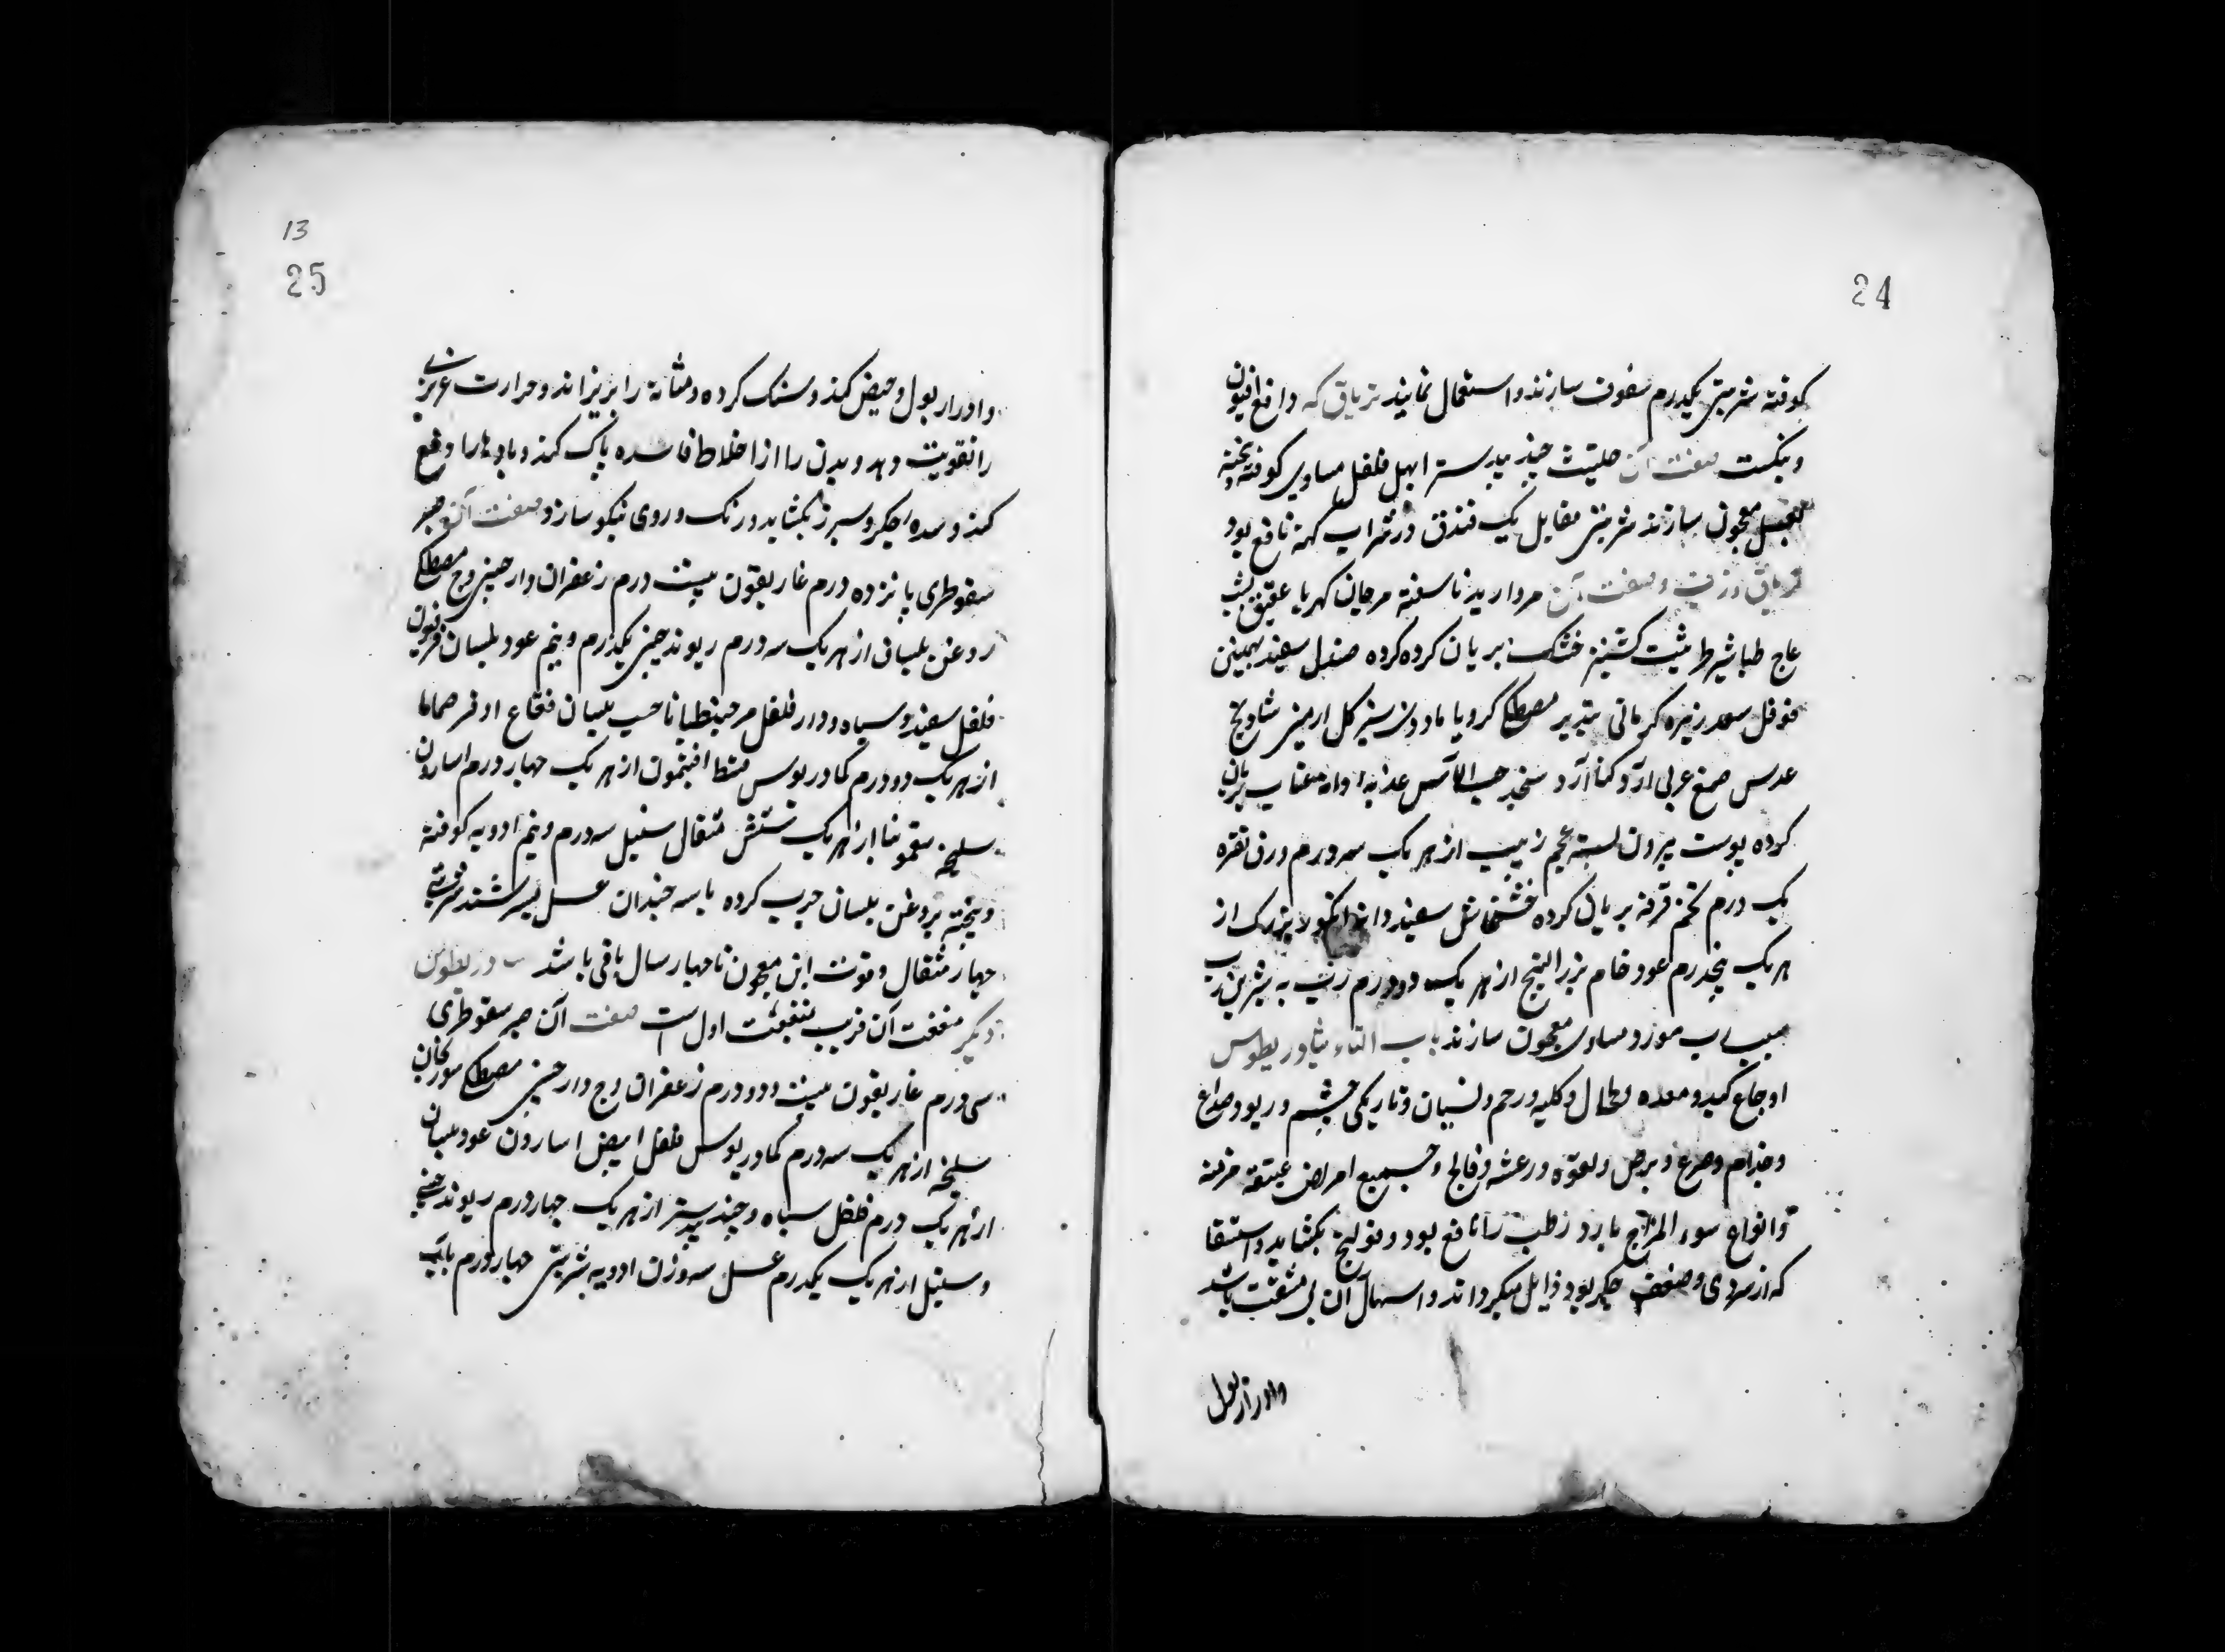 24
کوفته شربتی یکدرم سفوف سازند و استعمال نمایند تریاق که دافع افیون
و بنکست صفت آن حلتیت جند بیدستر ابهل فلفل مساوی کوفته و بیخته
بعسل معجون سازند شربتی مقابل یک فندق در شراب کهنه نافع بود
صفت آن مروارید ناسفته مرجان کهربا عقیق یشب
عاج طباشیر طرثیث کشنیز خشک بریان کرده کرده صندل سفید بهمنین
فوفل سعد زیره کرمانی مصطکی کرویا کل ارمنی شادنج
عدس صمغ عربی آرد کنار آرد سنجد حب الآس عذبه دانه عناب بریان
کرده پوست بیرون پسته عجم زبیب از هر یک سه درم ورق نقره
یک درم تخم خرفه بریان کرده خشخاش سفید بزرک از
هر یک پنجدرم عود خام بزر البنج از هر یک دو درم رب به شیرین رب
سیب رب مورد مساوی معجون سازند باب الثاء ثیادریطوس
اوجاع کبد و معده و طحال و کلیه و رحم و نسیان و تاریکی چشم و ربو و صداع
و جذام و صرع و برص و لقوه و رعشه و فالج و جمیع امراض عتیقه مزمنه
و انواع سوء المزاج بارد رطب را نافع بود و قولنج بکشاید و استسقا
که از سردی و ضعف جکر بود زایل میکرداند و اسهال آن بی مشقت باشد
وادرار بول
13
25
و ادرار بول و حیض کند و سنک کرده و مثانه را بریزاند و حرارت غریزی
را تقویت دهد و بدن را از اخلاط فاسده پاک کند و بادها را دفع
کند و سده جکر و سپرز بکشاید و رنک و روی نیکو سازد صفت آن صبر
سقوطری پانزده درم غاریقون بیست درم زعفران دارچینی وج مصطکی
روغن بلسان از هر یک سه درم ریوند چینی یکدرم و نیم عود بلسان فرفیون
فلفل سفید و سیاه و دار فلفل مر جنطیانا حب بلسان فقاع اذخر حماما
از هر یک دو درم کمادریوس قسط افتیمون از هر یک چهار درم اسارون
سلیخه سقمونیا از هر یک شش مثقال سنبل سه درم و نیم ادویه کوفته
و بیخته بروغن بلسان چرب کرده با سه چندان عسل بسرشند شربتی
چهار مثقال و قوت این معجون تا چهار سال باقی باشد ثیادریطوس
دیکر منفعت آن قریب بمنفعت اول است صفت آن صبر سقوطری
سی درم غاریقون بیست و دو درم زعفران وج دارچینی مصطکی سورنجان
سلیخه از هر یک سه درم کمادریوس فلفل ابیض اسارون عود بلسان
از هر یک درم فلفل سیاه و جند بیدستر از هر یک چهار درم ریوند چینی
و سنبل از هر یک یکدرم عسل سه وزن ادویه شربتی چهار درم بآب